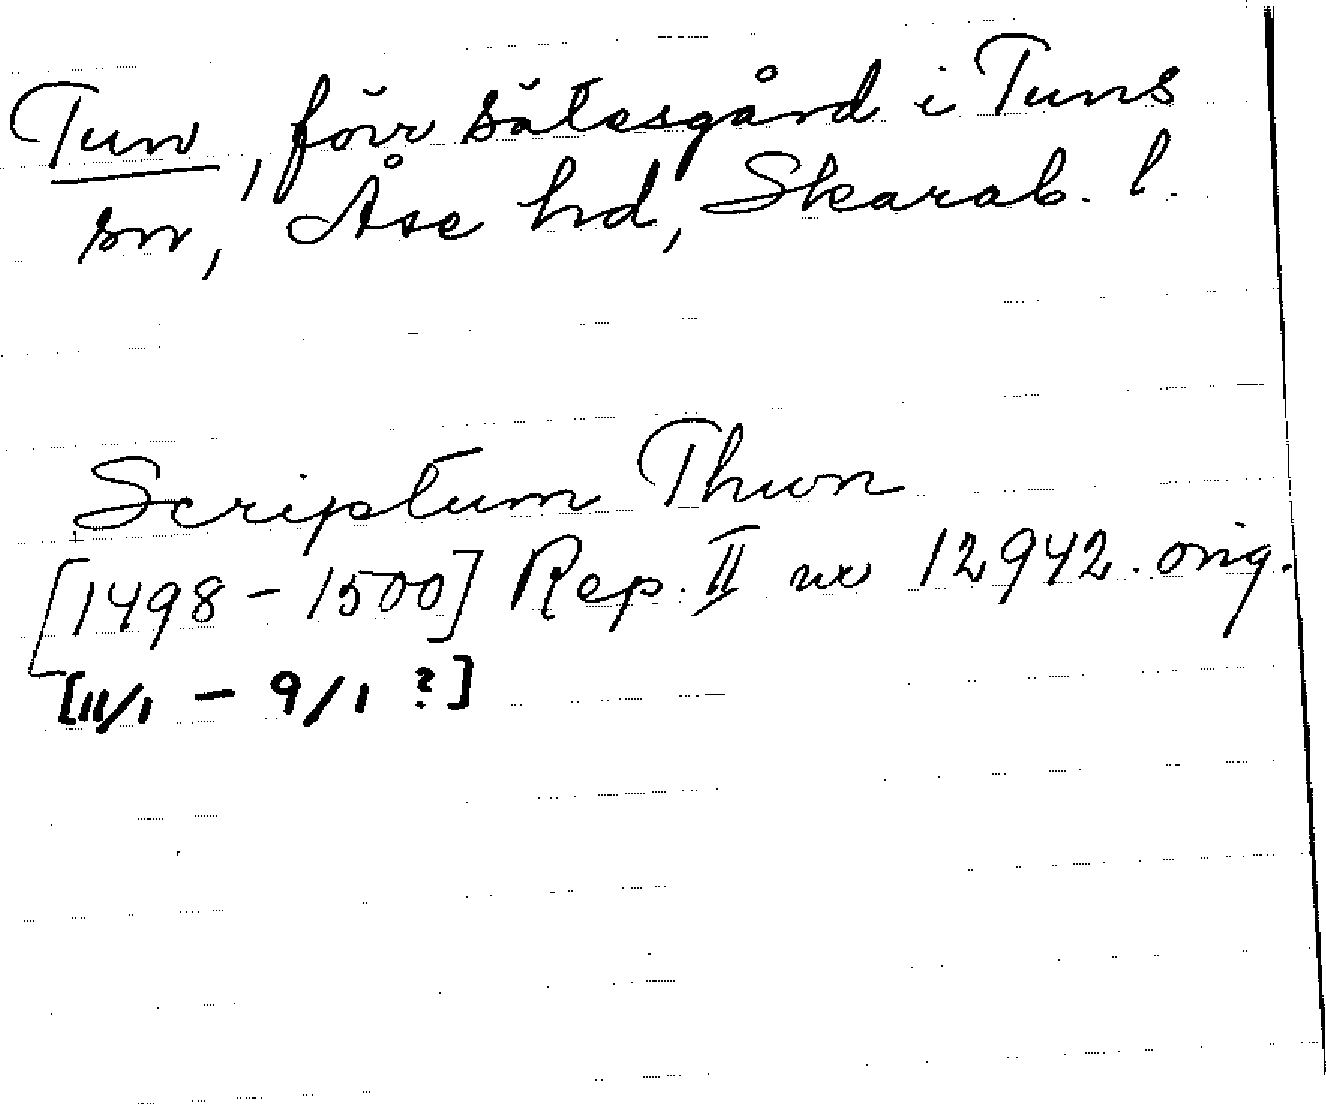 Tun, förr sätesgård i Tuns
sn, Åse hd, Skarab. l.
Scriptum Thwn
[1498 - 1500] Rep. II nr 12942. orig.
[11/1 - 9/1 ?]